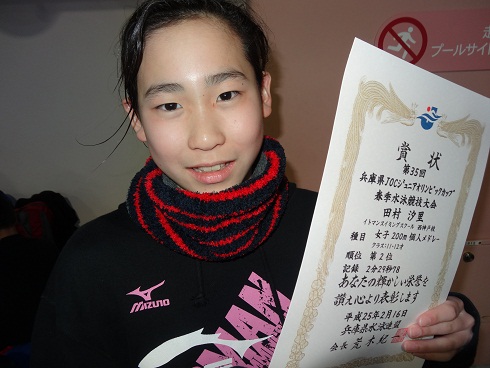 賞状
第35回
兵庫県JOCジュニアオリンピックカップ
春季水泳競技大会
田村 汐里
イトマンスイミングスクール 西神戸校
種目 女子 200m 個人メドレー
クラス:11-12才
順位 第2位
記録 2分29秒78
あなたの輝かしい栄誉を
讃え心より表彰します
平成25年2月16日
兵庫県水泳連盟
会長 荒木
プールサイド
MIZUNO